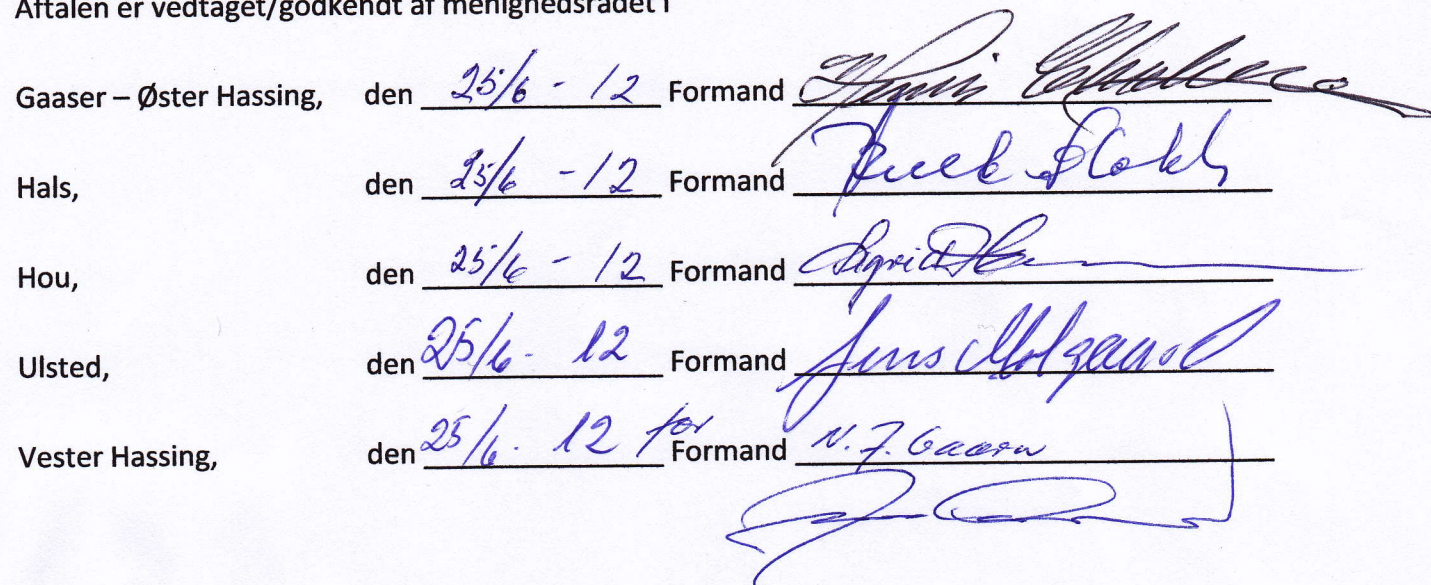 Aftalen er vedtaget/godkendt af menighedsrådet i
Gaaser – Øster Hassing, den 25/6 - 12 Formand
Hals, den 25/6 - 12 Formand
Hou, den 25/6 - 12 Formand Sigrid
Ulsted, den 25/6 - 12 Formand Jens Molgaard
Vester Hassing, den 25/6 - 12 for Formand N. J. Gaarn